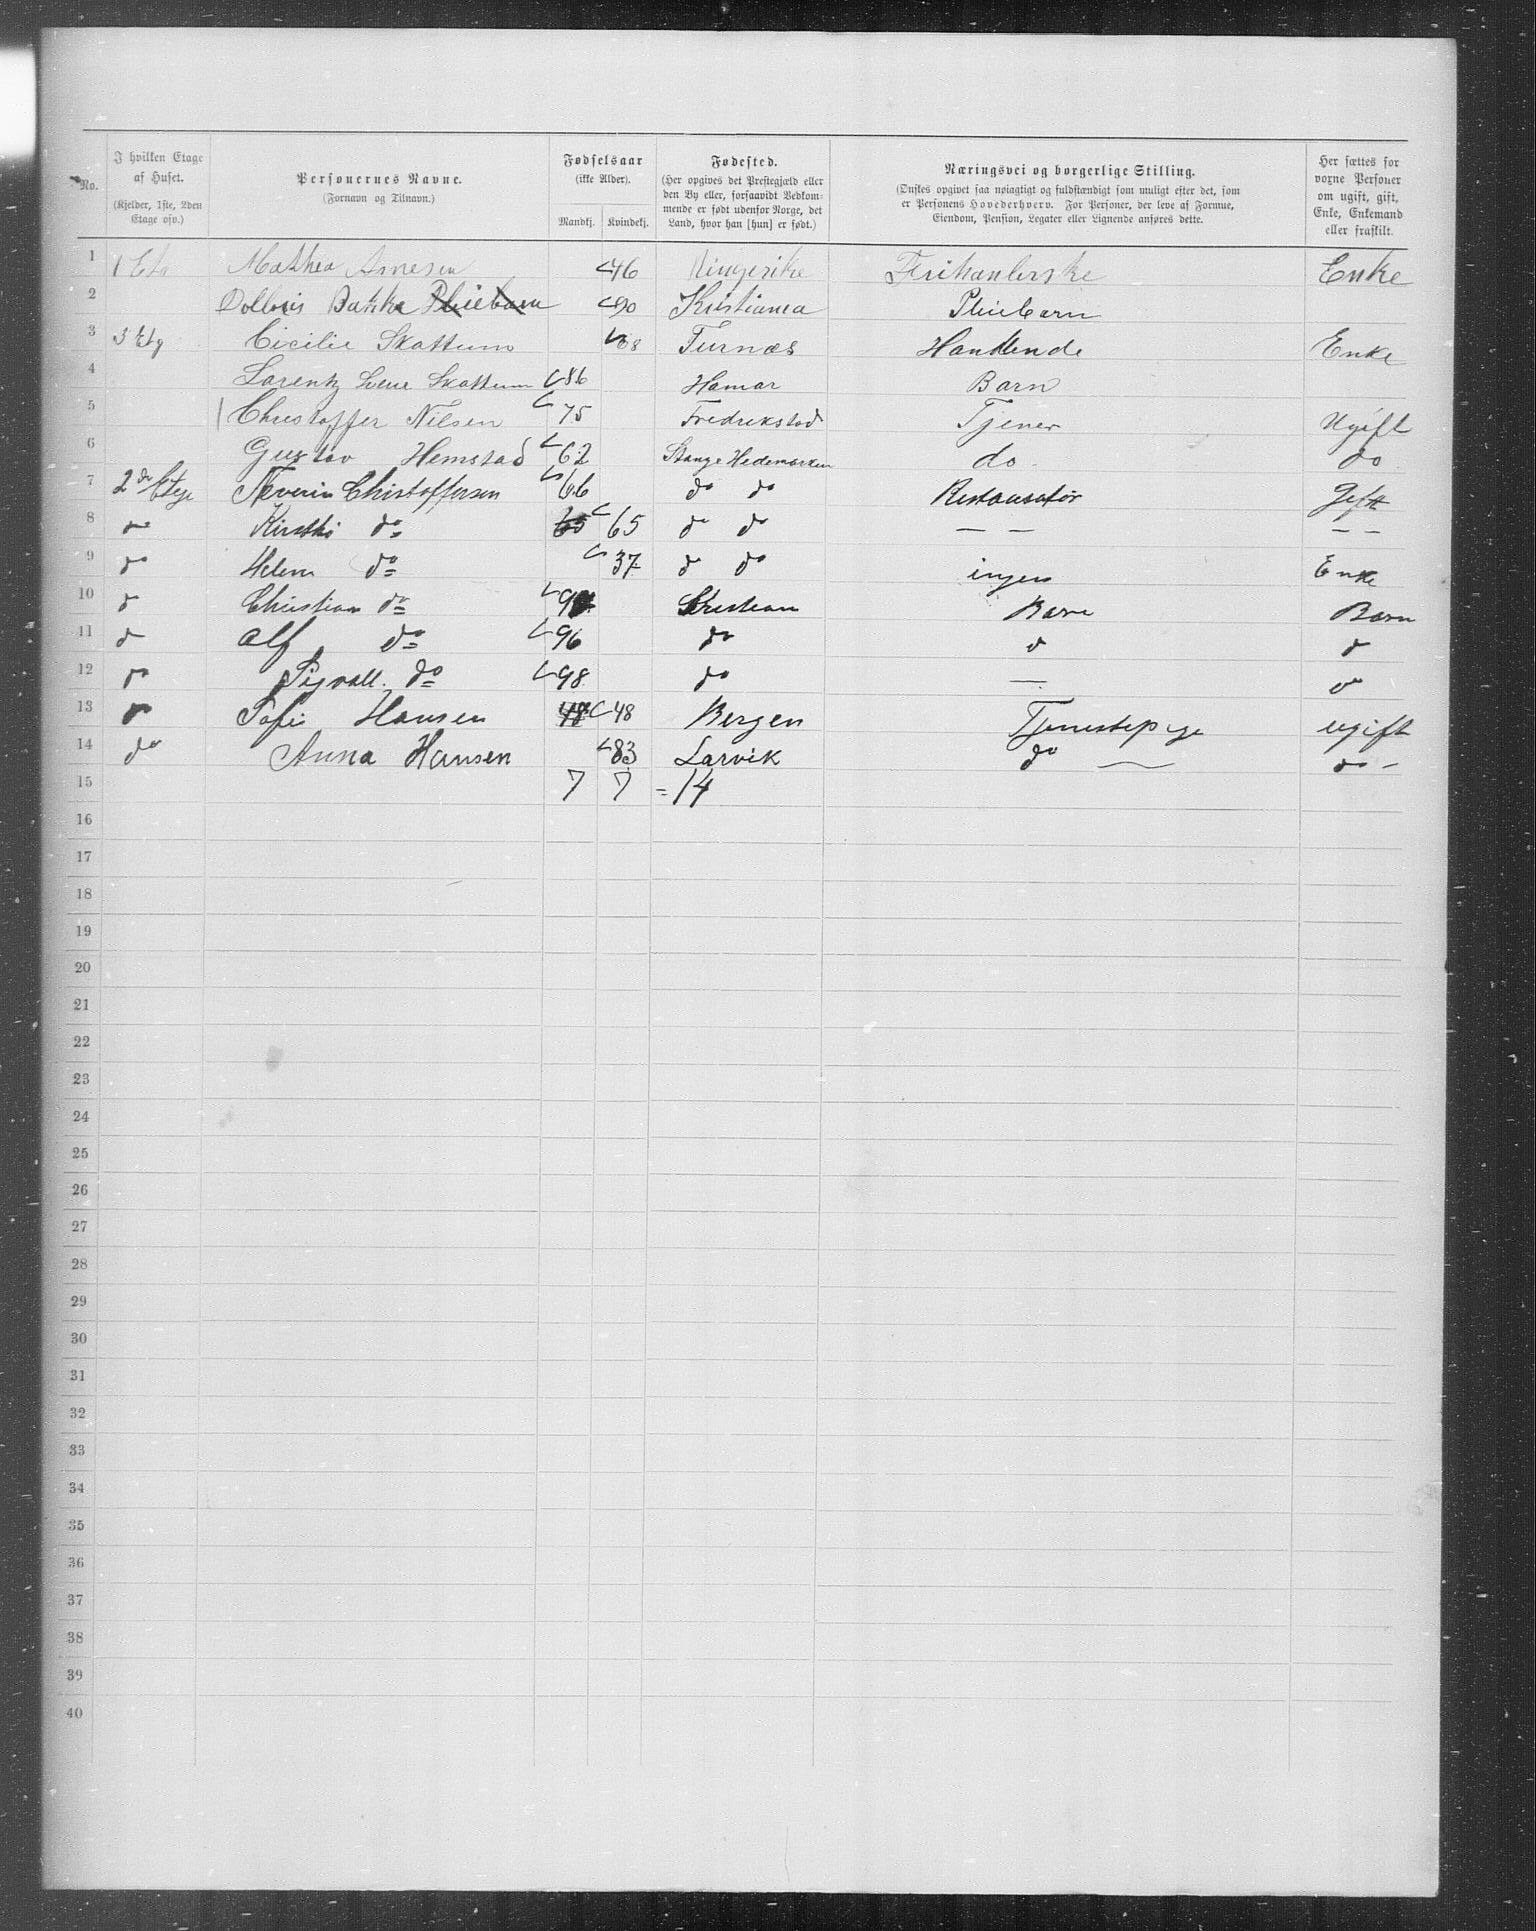 No.
I hvilken Etage af Huset.
(Kjelder, 1ste, 2den Etage osv.)
Personernes Navne.
(Fornavn og Tilnavn.)
Fødselsaar
(ikke Alder).
Mandkj. Kvindekj.
Fødested.
(Her opgives det Prestegjæld eller den By eller, forsaavidt Vedkommende er født udenfor Norge, det Land, hvor han [hun] er født.)
Næringsvei og borgerlige Stilling.
(Ønskes opgivet saa nøiagtigt og fuldstændigt som muligt efter det, som er Personens Hovederhverv. For Personer, der leve af Formue, Eiendom, Pension, Legater eller Lignende anføres dette.
Her sættes for voxne Personer om ugift, gift, Enke, Enkemand eller fraskilt.
1 1 Etg Mathea Arnesen 46 Ringerike Enke
2 Bakke Pleiebarn 90 Kristiania Pleiebarn
3 3 Etg Cicilie Skattum 68 Furnæs Handlende Enke
4 Lorentz Skattum 86 Hamar Barn
5 Christoffer Nilsen 75 Fredrikstad Tjener Ugift
6 Gustav Hemstad 62 Stange Hedemarken do do
7 2de Etge Severin Christoffersen 66 do do Restauratør Gift
8 do do 65 65 do do — — — —
9 do Helene do 37 do do ingen Enke
10 do Christian do Kristiania Barn Barn
11 do Alf do 96 do do do
12 do Sigvall. do 98 do — do
13 do Sofie Hansen 48 48 Bergen Tjenestepige ugift
14 do Anna Hansen 83 Larvik do — do -
15 7 7 = 14
16
17
18
19
20
21
22
23
24
25
26
27
28
29
30
31
32
33
34
35
36
37
38
39
40